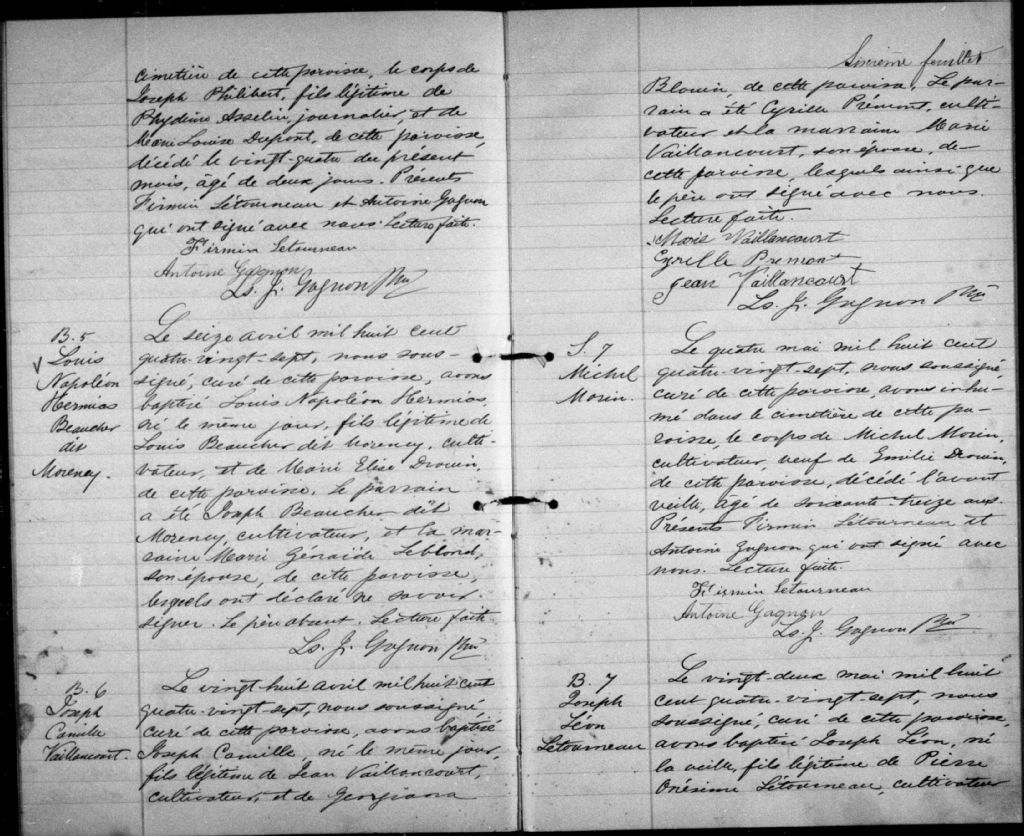 cimetière de cette paroisse, le corps de
Joseph Philibert, fils légitime de
Phydime Asselin, journalier, et de
Marie Louise Dupont, de cette paroisse,
décédé le vingt-quatre du présent
mois, âgé de deux jours. Présents
Firmin Létourneau et Antoine Gagnon
qui ont signé avec nous. Lecture faite.
Firmin Letourneau
Antoine Gagnon
Ls. J. Gagnon Ptre
B. 5
Louis
Napoléon
Hermias
Beaucher
dit
Morency.
Le seize avril mil huit cent
quatre-vingt-sept, nous sous-
signé, curé de cette paroisse, avons
baptisé Louis Napoléon Hermias,
né le même jour, fils légitime de
Louis Beaucher dit Morency, culti-
vateur, et de Marie Elise Drouin,
de cette paroisse. Le parrain
a été Joseph Beaucher dit
Morency, cultivateur, et la mar-
raine Marie Géraïde Leblond,
son épouse, de cette paroisse,
lesquels ont déclaré ne savoir
signer. Le père absent. Lecture faite.
Ls. J. Gagnon Ptre
B. 6
Joseph
Camille
Vaillancourt.
Le vingt-huit avril mil huit cent
quatre-vingt-sept, nous soussigné,
curé de cette paroisse, avons baptisé
Joseph Camille, né le même jour,
fils légitime de Jean Vaillancourt,
cultivateur, et de Georgiana
Sixième feuillet
Blouin, de cette paroisse. Le par-
rain a été Cyrille Prémont, culti-
vateur et la marraine Marie
Vaillancourt, son épouse, de
cette paroisse, lesquels ainsi que
le père ont signé avec nous.
Lecture faite.
Marie Vaillancourt
Cyrille Premont
Jean Vaillancourt
Ls. J. Gagnon Ptre
S. 7
Michel
Morin.
Le quatre mai mil huit cent
quatre-vingt-sept, nous soussigné,
curé de cette paroisse, avons inhu-
mé dans le cimetière de cette pa-
roisse le corps de Michel Morin,
cultivateur, veuf de Emilie Drouin,
de cette paroisse, décédé l'avant
veille, âgé de soixante-treize ans.
Présents Firmin Létourneau et
Antoine Gagnon qui ont signé avec
nous. Lecture faite.
Firmin Letourneau
Antoine Gagnon
Ls. J. Gagnon Ptre
B. 7
Joseph
Léon
Létourneau
Le vingt-deux mai mil huit
cent quatre-vingt-sept, nous
soussigné, curé de cette paroisse,
avons baptisé Joseph Léon, né
la veille, fils légitime de Pierre
Onésime Létourneau, cultivateur